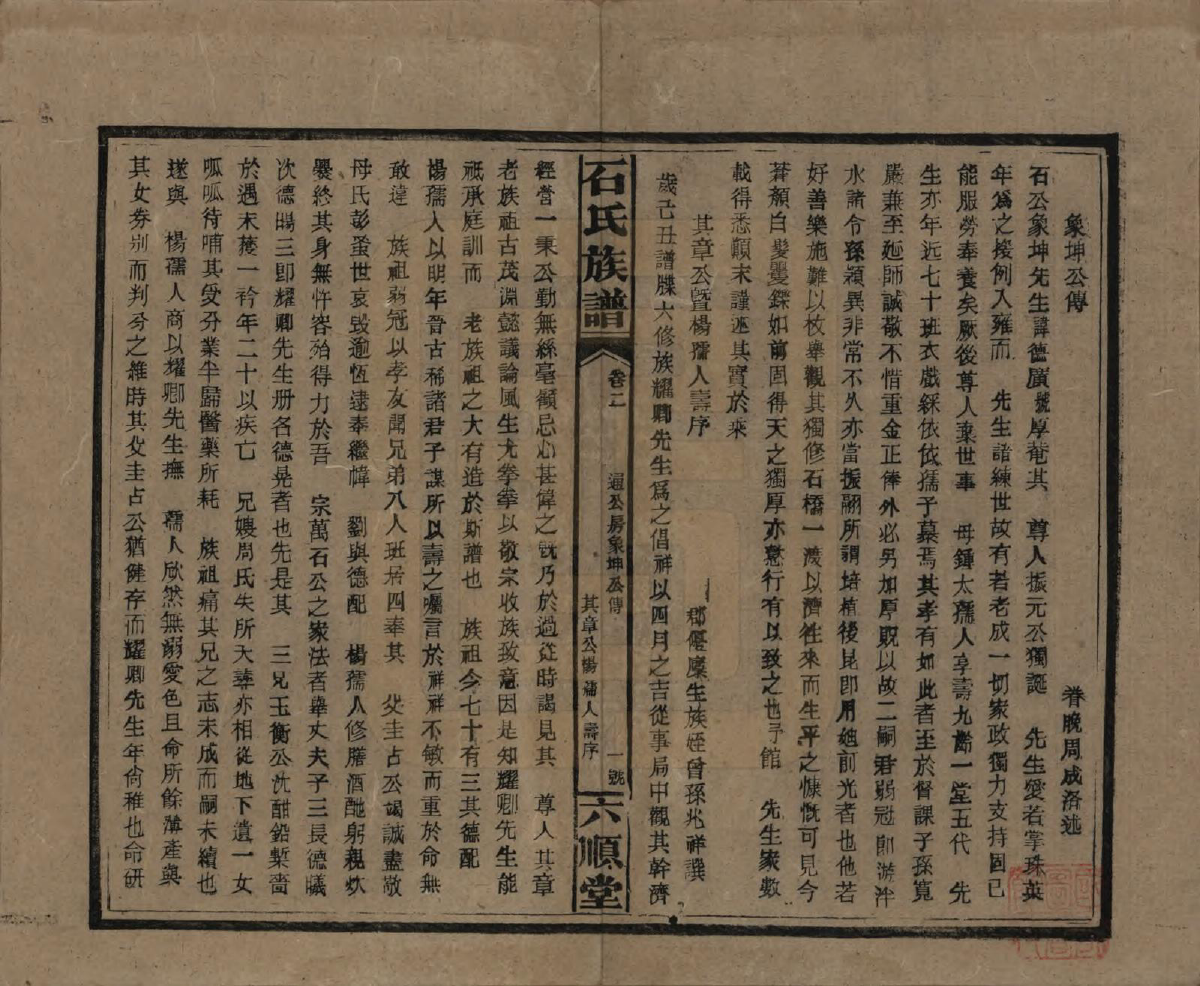 象坤公傳
眷晚周成洛述
石公象坤先生諱德廣號厚菴其 尊人振元公獨誕 先生愛若掌珠英
年爲之授例入雍而 先生諳練世故有若老成一切家政獨力支持固已
能服勞奉養矣厥後尊人棄世事 母鍾太孺人享壽九齡一堂五代 先
生亦年近七十班衣戲綵依依孺子慕焉其孝有如此者至於督課子孫寬
嚴兼至延師誠敬不惜重金正俸外必另加厚貺以故二嗣君弱冠即游泮
水諸令孫穎異非常不久亦當振翮所謂培植後昆即用迪前光者也他若
好善樂施難以枚舉觀其獨修石橋一渡以濟往來而生平之慷慨可見今
蒼顏白髮矍鑠如前固得天之獨厚亦懿行有以致之也予館 先生家數
載得悉顛末謹述其實於乘
其章公曁楊孺人壽序
郡優廩生族姪曾孫兆祥譔
歲己丑譜牒六修族耀卿先生爲之倡祥以四月之吉從事局中觀其幹濟
石氏族譜
卷二
通公房象坤公傳
其章公楊孺人壽序
一號
六順堂
經營一秉公勤無絲毫顧忌心甚偉之旣乃於過從時謁見其 尊人其章
老族祖古茂淵懿議論風生尤拳拳以敬宗收族致意因是知耀卿先生能
祇承庭訓而 老族祖之大有造於斯譜也 族祖今七十有三其德配
楊孺人以明年晉古稀諸君子謀所以壽之囑言於祥祥不敏而重於命無
敢違 族祖弱冠以孝友聞兄弟八人班居四奉其 父圭占公竭誠盡敬
母氏彭蚤世哀毀逾恆逮奉繼幃 劉與德配 楊孺人修膳酒酏躬親炊
爨終其身無忤容殆得力於吾 宗萬石公之家法者舉丈夫子三長德曦
次德暘三即耀卿先生册名德晃者也先是其 三兄玉衡公沈酣鉛槧嗇
於遇未葰一衿年二十以疾亡 兄嫂周氏失所天葬亦相從地下遺一女
呱呱待哺其受分業半歸醫藥所耗 族祖痛其兄之志未成而嗣未續也
遂與 楊孺人商以耀卿先生撫 孺人欣然無溺愛色且命所餘薄產與
其女券別而判分之維時其父圭占公猶健存而耀卿先生年尙稚也命研